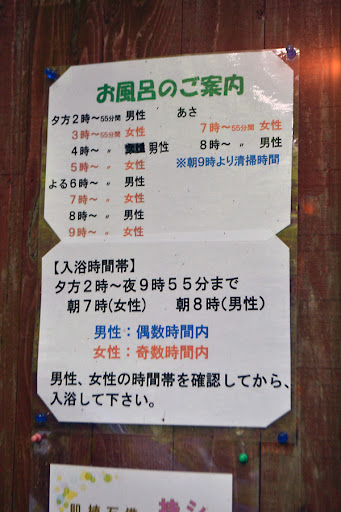 お風呂のご案内
夕方2時～55分間 男性
3時～55分間 女性
4時～ 〃 男性
5時～ 〃 女性
よる6時～ 〃 男性
7時～ 〃 女性
8時～ 〃 男性
9時～ 〃 女性
あさ
7時～55分間 女性
8時～ 〃 男性
※朝9時より清掃時間
【入浴時間帯】
夕方2時～夜9時55分まで
朝7時(女性) 朝8時(男性)
男性：偶数時間内
女性：奇数時間内
男性、女性の時間帯を確認してから、
入浴して下さい。